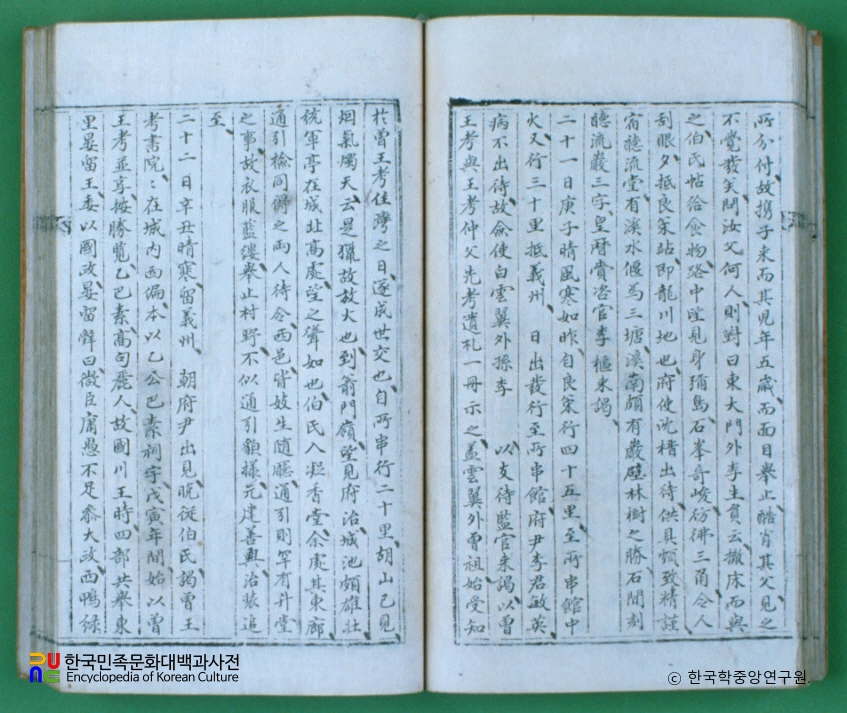 所分付故携子来而其児年五歲而面目舉止酷肖其父見之
不覺發笑問汝父何人則對曰東大門外李生員云撤床而與
之伯氏帖給食物路中望見身彌島石峯奇峻彷彿三角令人
刮眼夕抵良策站即龍川地也府使沈楮出待供具頗致精謹
宿聽流堂有溪水偃為三塘溪南頗有巖壁林樹之勝石間刻
聽流巖三字皇曆賫咨官李樞来謁
二十一日庚子晴風寒如昨自良策行四十五里至所串館中
火又行三十里抵義州 日出發行至所串館府尹李君敏英
病不出待故僉使白雲翼外孫李 以支待監官来謁以曽
王考與王考仲父先考遺札一冊示之盖雲翼外曽祖始受知
於曽王考住灣之日遂成世交也自所串行二十里胡山已見
烟氣燭天云是獵故放火也到箭門嶺望見府治城池頗雄壮
統軍亭在城北高處望之聳如也伯氏入凝香堂余處其東廊
通引檢同 之両人待令西邑皆妓生随聽通引則罕有升堂
之事故衣服藍縷舉止村野不似通引貌樣元建善輿治装追
至
二十二日辛丑晴寒留義州 朝府尹出見晩從伯氏謁曽王
考書院〻在城内西偏本以乙公巴素祠宇戊寅年間始以曽
王考並享按勝覧乙巴素高句麗人故國川王時四部共舉東
里晏留王委以國政晏留辭曰微臣庸愚不足叅大政西鴨綠
한국민족문화대백과사전
Encyclopedia of Korean Culture
ⓒ 한국학중앙연구원